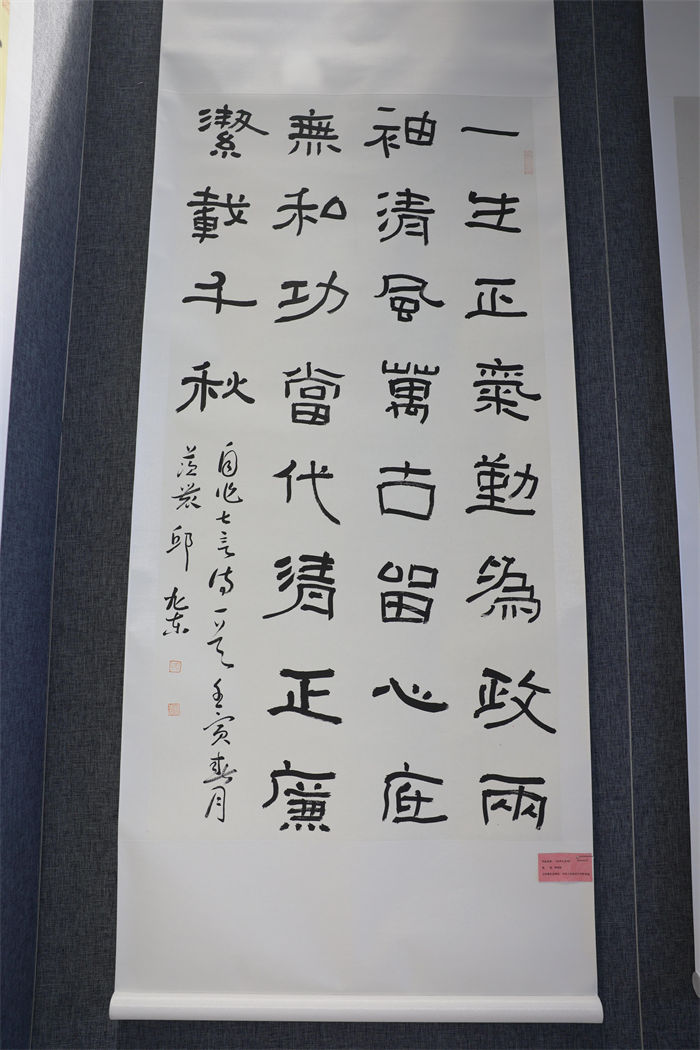 一生正氣勤為政兩
袖清風萬古留心底
無私功當代清正廉
潔載千秋
自作七言诗一首壬寅春月
邱